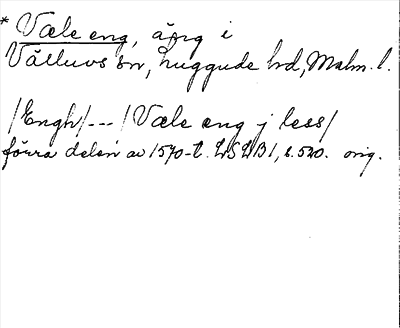 * Væle eng, äng i
Välluvs sn, Luggude hd, Malm. l.
/Engh/ --- /Væle eng j less/
förra delen av 1570-t. LSLB 1, s. 520. orig.